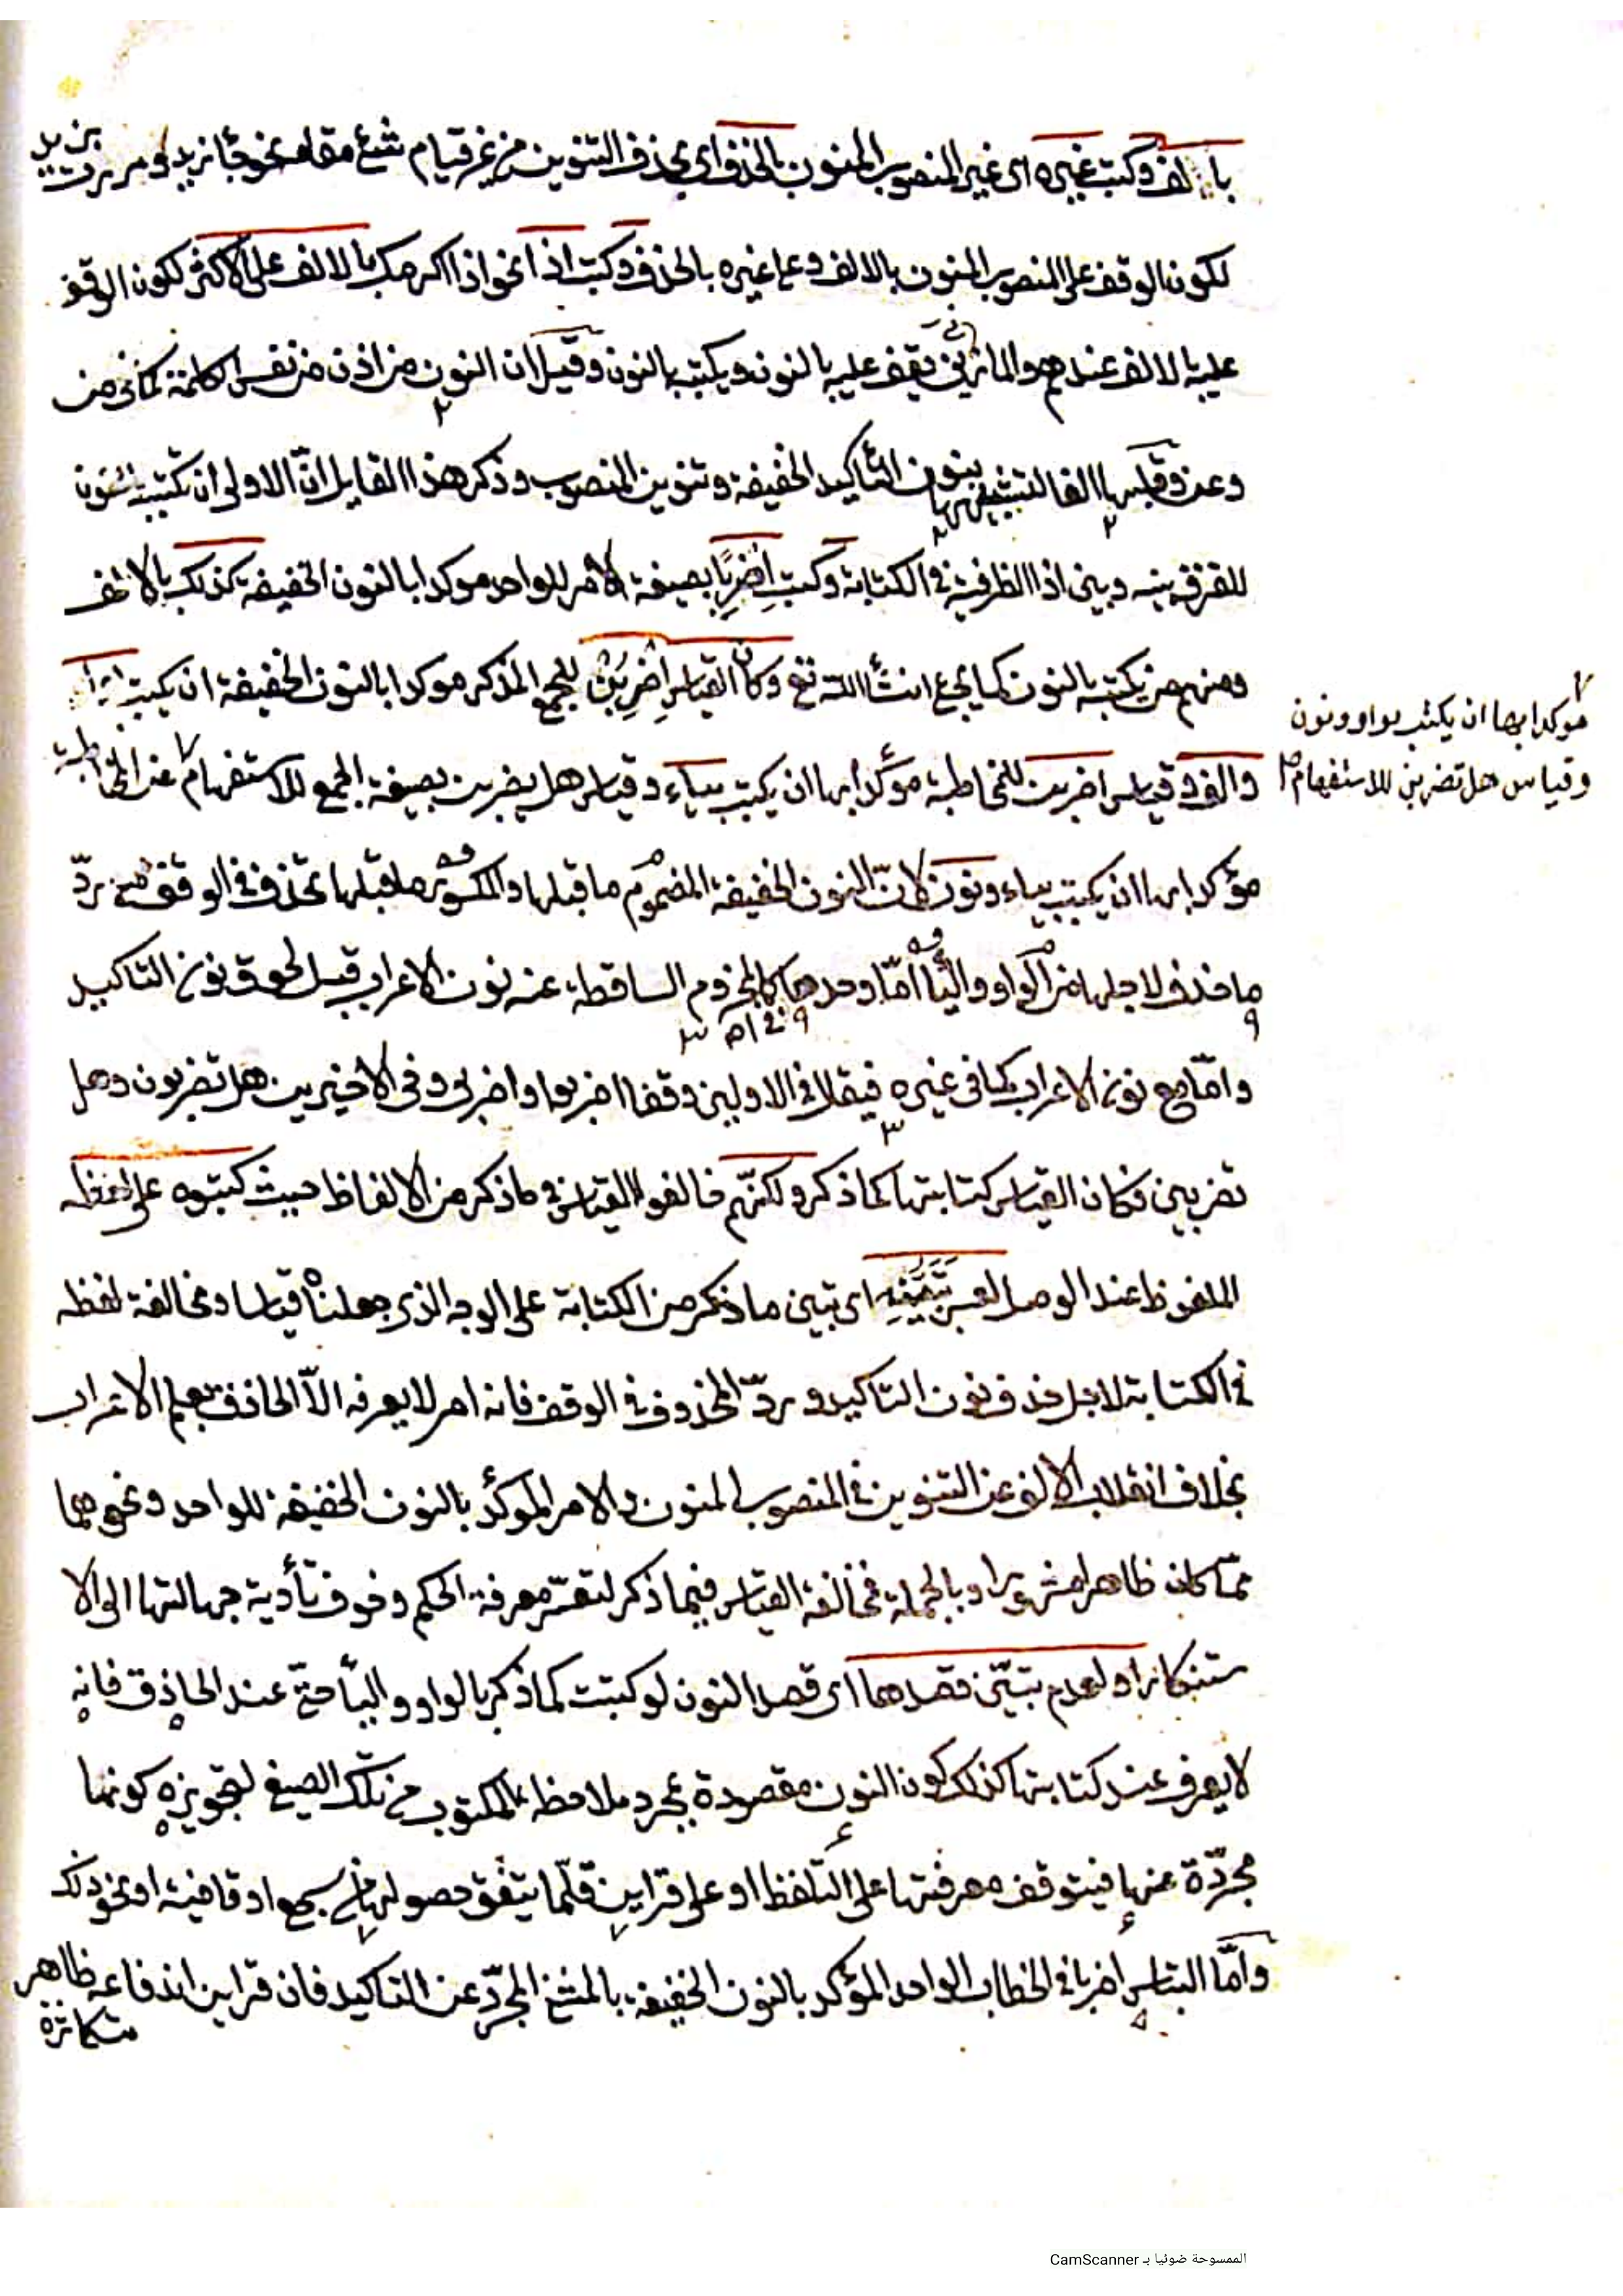 بالالف وكتب غيره اى غير المنصوب المنون بالحذف اى بحذف التنوين من غير قيام شئ مقامه نحو جأ زيد ومررت بزيد
لكون الوقف على المنصوب المنون بالالف وعلى غيره بالحذف وكتب اذا نحو اذا اكرمك بالالف على الاكثر لكون الوقف
عليه بالالف عندهم والمازنى يقف عليه بالنون ويكتب بالنون وقيل ان النون من اذن من نفس الكلمة كما فى من
وعن وقلبها الفا لتشبيهها بنون التأكيد الخفيفة وتنوين المنصوب وذكر هذا القايل انّ الاولى ان تكتب بنون
للفرق بينه وبين اذا الظرفية فى الكتابة وكتب اضربًا بصيغة الامر للواحد موكدا بالنون الخفيفة كذلك بالالف
ومنهم من يكتبه بالنون كما يجئ ان شأ الله تع وكان القياس اضربُنْ للجمع المذكر موكدا بالنون الخفيفة ان يكتب بواو
والف وقياس اضربن للمخاطبة مؤكدا بها ان يكتب بياء وقياس هل يضربن بصيغة الجمع للاستفهام عن المخاطبة
موكدا بها ان يكتب بواو ونون
وقياس هل تضربن للاستفهام
مؤكدا بها ان يكتب بياء ونون لانّ النون الخفيفة المضموم ما قبلها والمكسور ما قبلها تحذف فى الوقف مع ردّ
ما حذف لاجلها من الواو واليأ امّا وحدهما كالمجزوم الساقطة عنه نون الاعراب قبل لحوق نون التاكيد
وامّا مع نون الاعراب كما فى غيره فيقال فى الاولين وقفا اضربوا واضربى وفى الاخيرين هل تضربون وهل
تضربين فكان القياس كتابتها كما ذكر ولكنّهم خالفوا القياس فى ما ذكر من الالفاظ حيث كتبوه على لفظه
الملفوظ عند الوصل لعسر تبيّنه اى تبين ما ذكر من الكتابة على الوجه الذى جعلناه قياسا ومخالفة لفظه
فى الكتابة لاجل حذف نون التاكيد وردّ المحذوف فى الوقف فانه امر لا يعرفه الاّ الحاذق بعلم الاعراب
بخلاف انقلاب الالف عن التنوين فى المنصوب المنون والامر الموكّد بالنون الخفيفة للواحد ونحوهما
ممّا كان ظاهرا مشهورا وبالجملة فمخالفة القياس فيما ذكر لتعسّر معرفة الحكم وخوف تأدية جهالتها الى الا
ستنكار او لعدم تبيّن قصدها اى قصد النون لو كتبت كما ذكر بالواو واليأ حتّى عند الحاذق فانه
لا يعرف عند كتابتها كذلك كون النون مقصودة بمجرد ملاحظة المكتوب من تلك الصيغ لتجويزه كونها
مجرّدة عنها فيتوقف معرفتها على التلفظ او على قراين قلّما يتفق حصولها من سجع او قافية او نحو ذلك
وامّا التباس اضربا فى الخطاب الواحد المؤكد بالنون الخفيفة بالمثنى المجرّد عن التاكيد فان قراين اندفاعه ظاهر
متكاثرة
الممسوحة ضوئيا بـ CamScanner